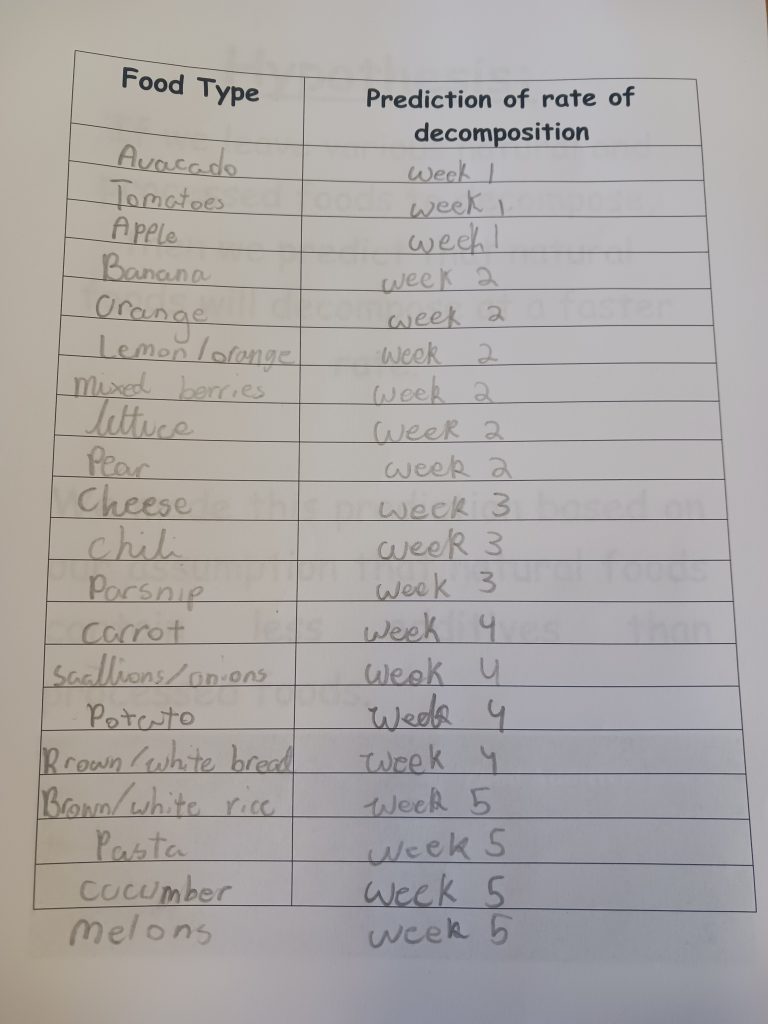 Food Type Prediction of rate of
decomposition
Avacado week 1
Tomatoes week 1
Apple week 1
Banana week 2
Orange week 2
Lemon/orange week 2
mixed berries week 2
lettuce week 2
Pear week 2
Cheese week 3
chili week 3
Parsnip week 3
carrot week 4
scallions/onions week 4
Potato week 4
Brown/white bread week 4
Brown/white rice week 5
Pasta week 5
cucumber week 5
melons week 5